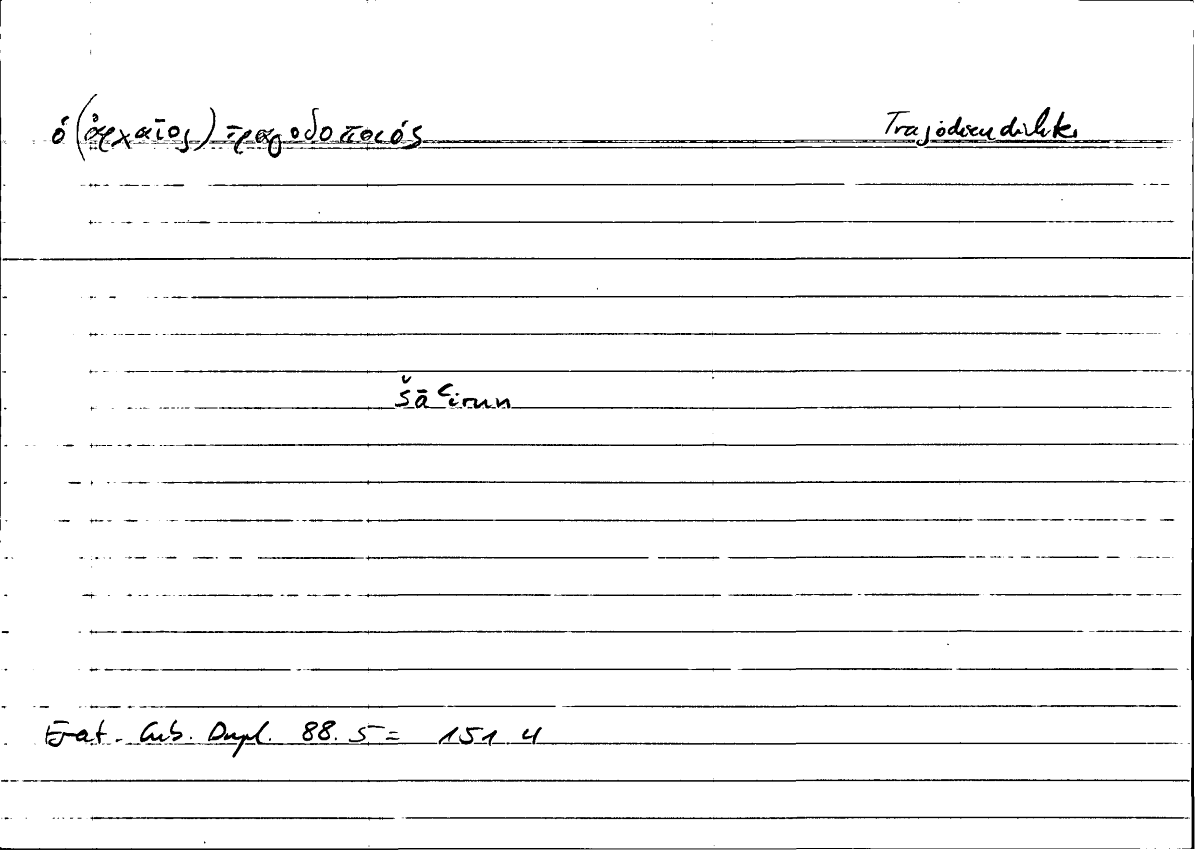 ὁ (ἀρχαῖος) τραγοδοποιός Tragödiendichter
šāʿirun
Erat. Cub. Dupl. 88. 5 = 151 4